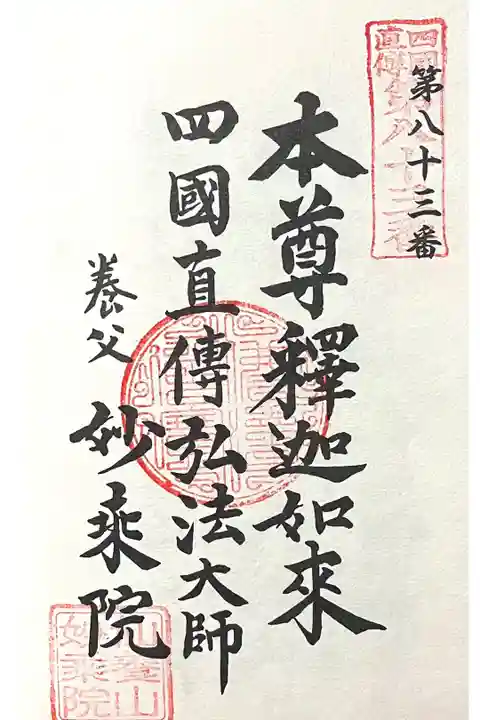 第八十三番
四國直傳第八十三番
本尊釋迦如來
四國直傳弘法大師
養父
妙乘院
妙乘院